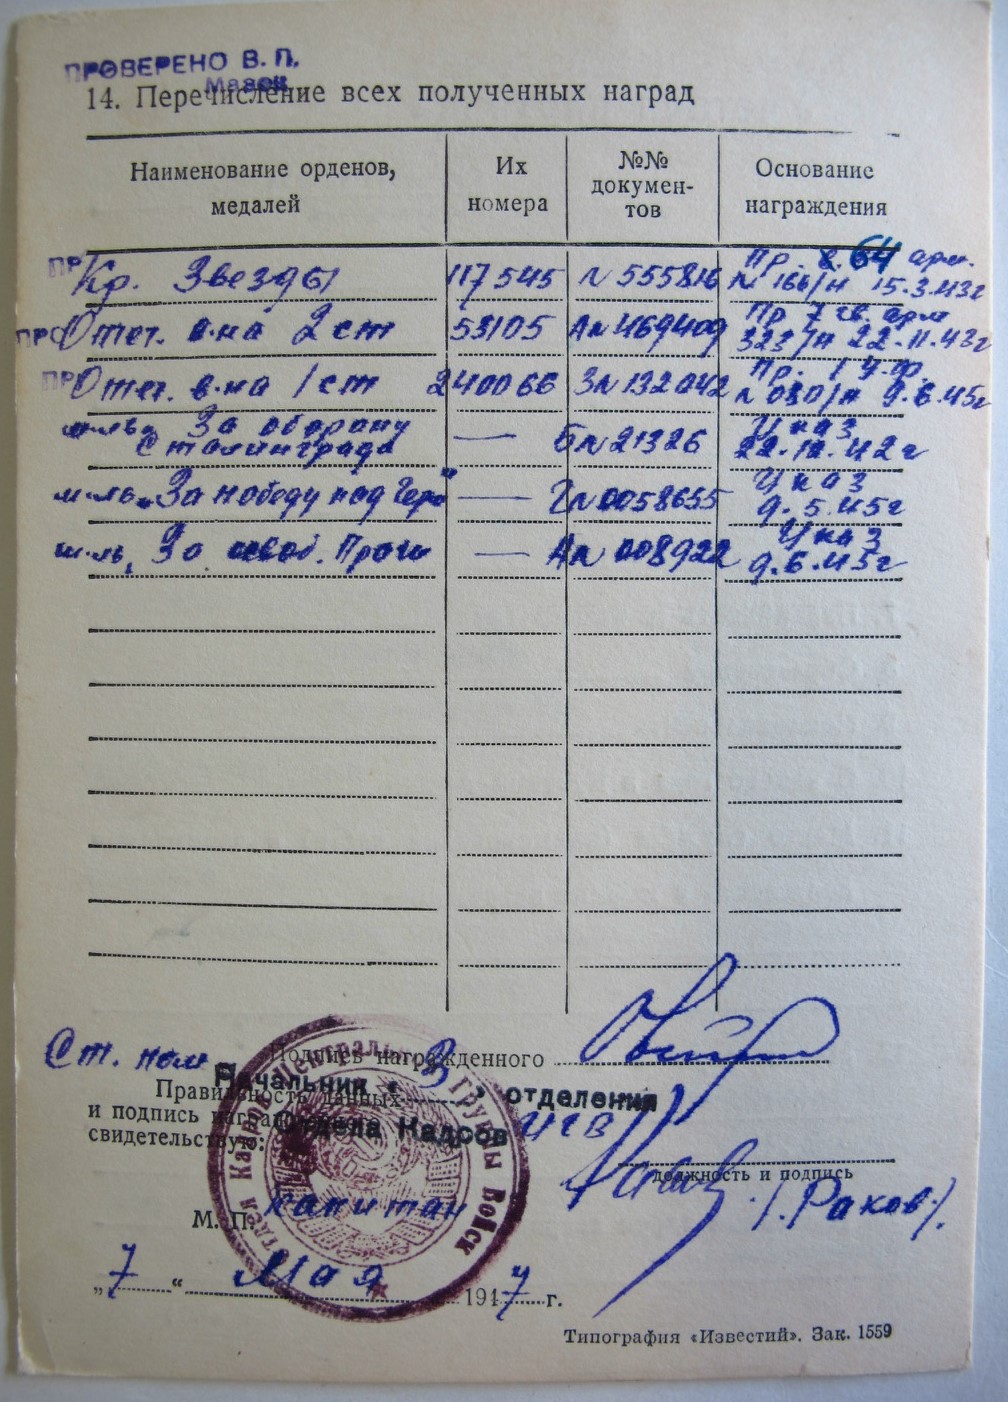 ПРОВЕРЕНО В. П.
14. Перечисление всех полученных наград
Наименование орденов, медалей
Их номера
№№ докумен-тов
Основание награждения
Кр. Звезды 117545 № 555816 Пр. 64 арм. № 166/н 15.3.43г
Отеч. в-на 2 ст 53105 А№469409 Пр 7 гв. арм 323/н 22.11.43г
Отеч. в-на 1 ст 240066 З№132042 Пр. 1 У.Ф. № 080/н 9.6.45г
м-ль За оборону Сталинграда — Б№21326 Указ 22.12.42г
м-ль „За победу над Гер" — №0058655 Указ 9.5.45г
м-ль, За освоб. Праги — А№ 008922 Указ 9.6.45г
Ст. пом
Подпись награжденного
Начальник 3 отделения
Правильность данных
и подпись
Отдела Кадров ЦГВ
свидетельствую:
должность и подпись
М. П. капитан /.Раков./
„7“ Мая 1947 г.
Центральной Группы Войск
Типография «Известий». Зак. 1559